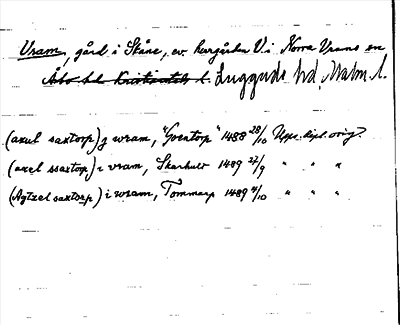 Vram, gård i Skåne, ev. herrgården V. i Norra Vrams sn
Åbo hd Kristianstads l. Luggude hd, Malm. l.
(axul saxtorp) j wram, "Gventorp" 1488 28/10 Upps. dipl. orig.
(axel ssaxtorp) i vram, Skarhult 1489 27/9 " " "
(Agtzel saxtorp) i wram, Tommarp 1489 4/10 " " "